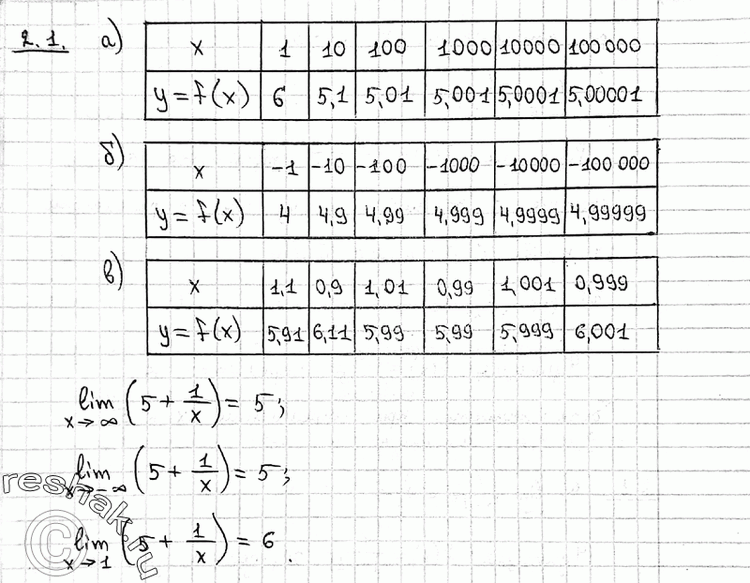 2.1. а) x 1 10 100 1000 10000 100 000
y = f(x) 6 5,1 5,01 5,001 5,0001 5,00001
б) x -1 -10 -100 -1000 -10000 -100 000
y = f(x) 4 4,9 4,99 4,999 4,9999 4,99999
в) x 1,1 0,9 1,01 0,99 1,001 0,999
y = f(x) 5,91 6,11 5,99 5,99 5,999 6,001
lim x→∞ (5 + 1/x) = 5;
lim x→-∞ (5 + 1/x) = 5;
lim x→1 (5 + 1/x) = 6.
© reshak.ru